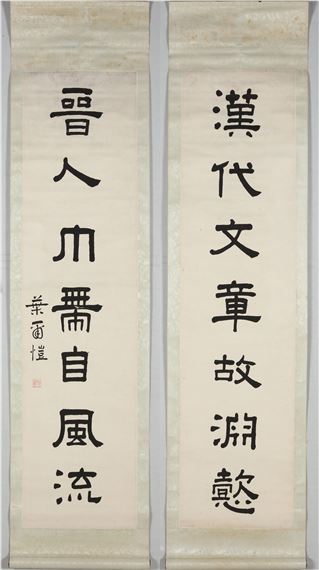 漢代文章故淵懿
晉人巾帶自風流
葉爾愷